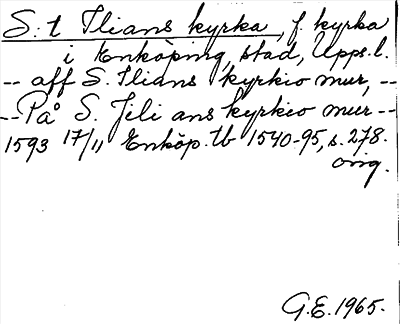 S:t Ilians kyrka, f. kyrka
i Enköping, stad, Upps.l.
-- aff S. Ilians kyrkio mur, --
-- På S. Jli ans kyrkio mur --
1593 17/11 Enköp. tb 1540-95, s. 278.
orig.
G.E. 1965.